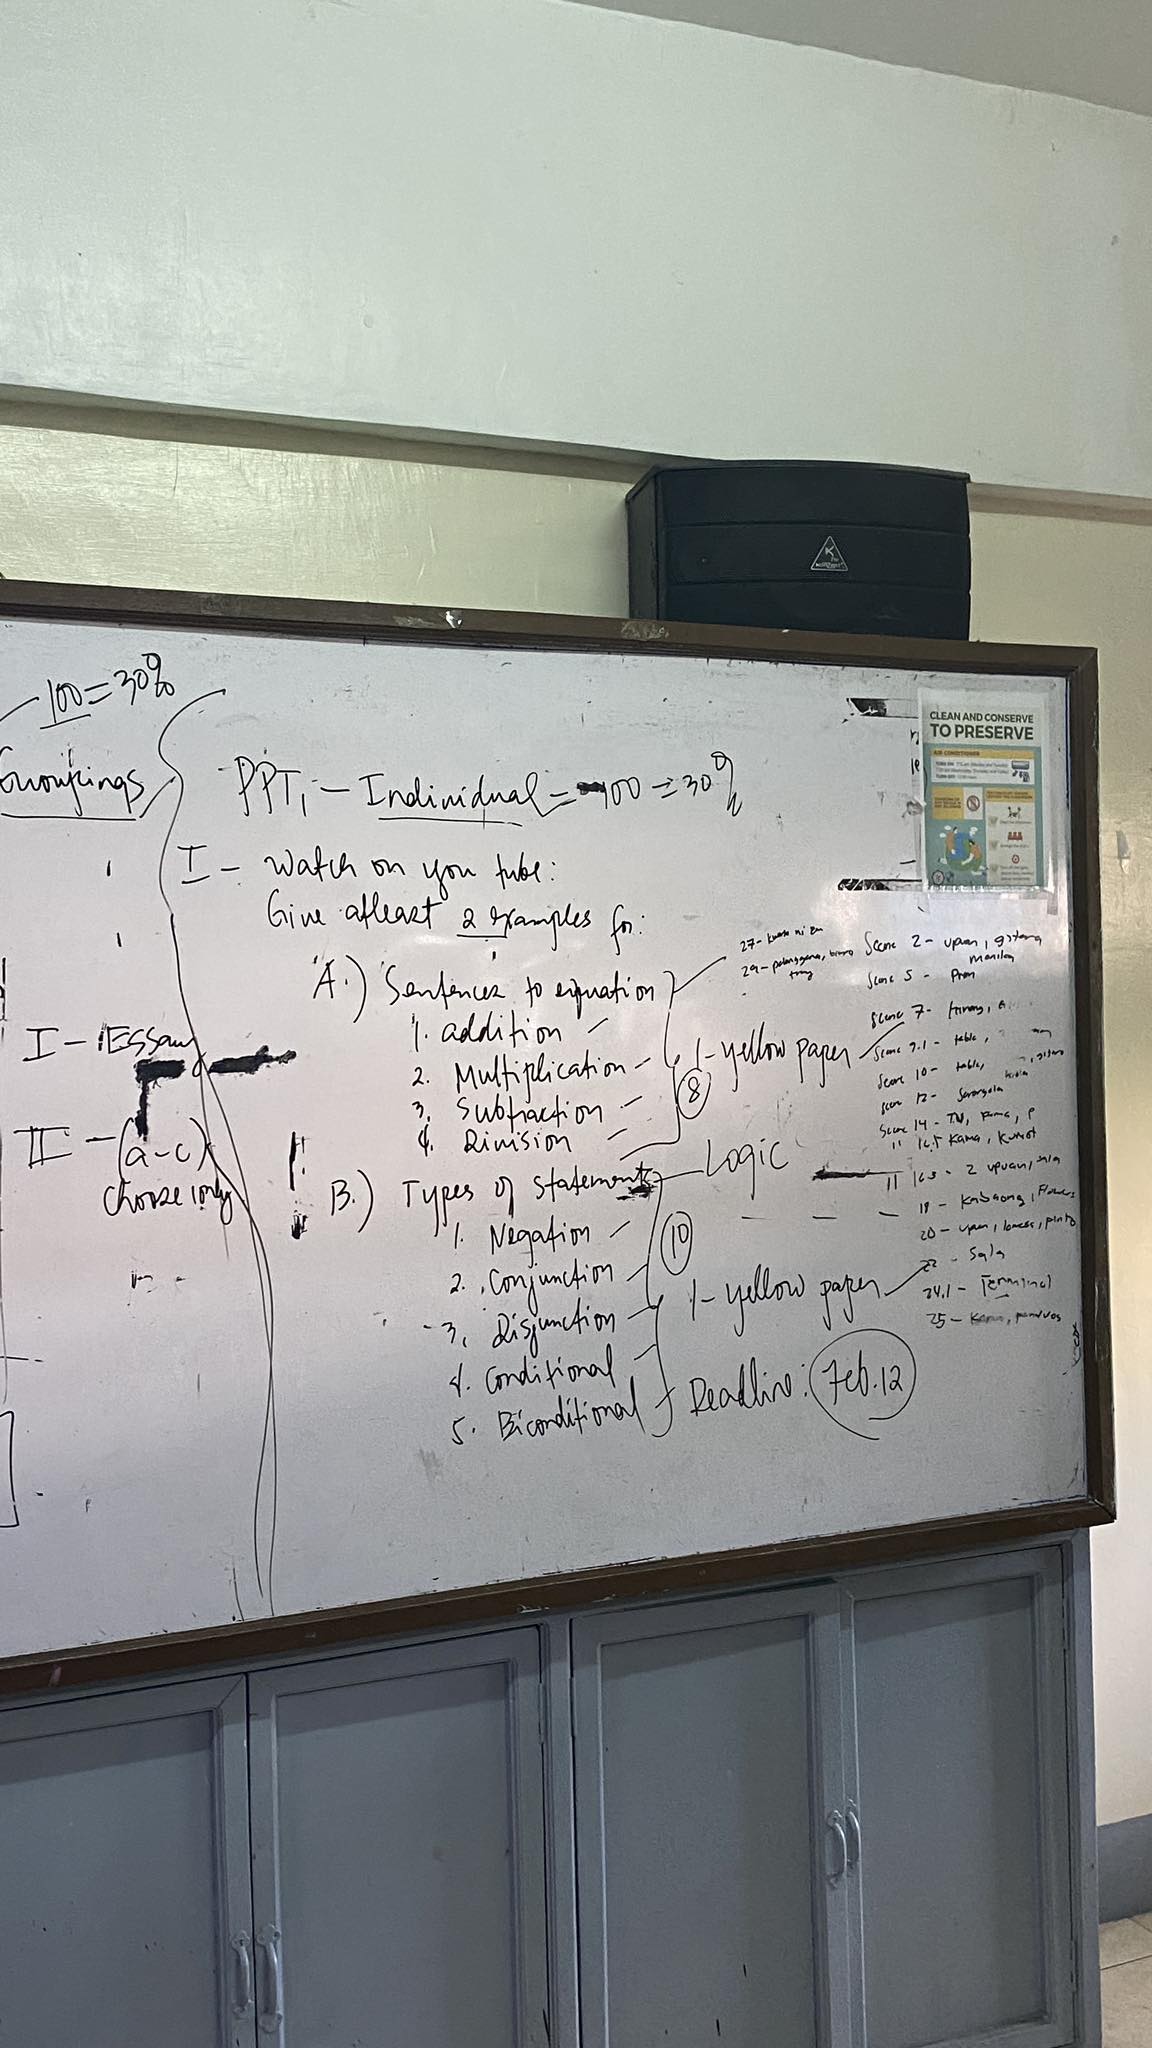 100 = 30%
Groupings
I - Essay
II - (a-c)
choose 1 only
PPT, - Individual = 100 = 30%
I - Watch on you tube:
Give atleast 2 examples for:
A.) Sentences to equation
1. addition
2. Multiplication
3. Subtraction
4. Division
8
1 - yellow paper
B.) Types of statements - Logic
1. Negation
2. Conjunction
3. Disjunction
4. Conditional
5. Biconditional
10
1 - yellow paper
Deadline: Feb. 12
27 -
29 - palanggana,
Scene 2 - upuan, gitara
Scene 5 -
Scene 7 -
Scene 9.1 - table,
Scene 10 - table,
Scene 12 -
Scene 14 - TV, Kama,
11 16.5 Kama, Kumot
11 16.3 - 2 upuan, sala
18 - Kabaong, Flowers
20 - upuan,
22 - Sala
24.1 - Terminal
25 -
CLEAN AND CONSERVE
TO PRESERVE
AIR CONDITIONER
K